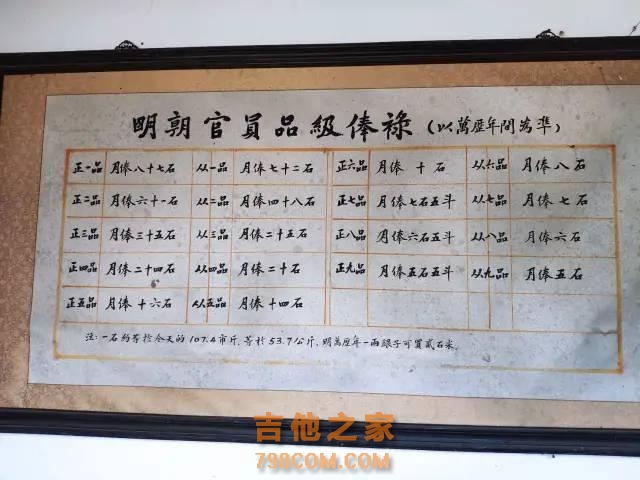 明朝官員品級俸祿（以萬歷年間為準）
正一品 月俸八十七石 从一品 月俸七十二石 正六品 月俸十石 从六品 月俸八石
正二品 月俸六十一石 从二品 月俸四十八石 正七品 月俸七石五斗 从七品 月俸七石
正三品 月俸三十五石 从三品 月俸二十五石 正八品 月俸六石五斗 从八品 月俸六石
正四品 月俸二十四石 从四品 月俸二十石 正九品 月俸五石五斗 从九品 月俸五石
正五品 月俸十六石 从五品 月俸十四石
注：一石約等於今天的107.4市斤，等於53.7公斤，明萬歷年一兩銀子可買貳石米。
吉他之家
798COM.COM